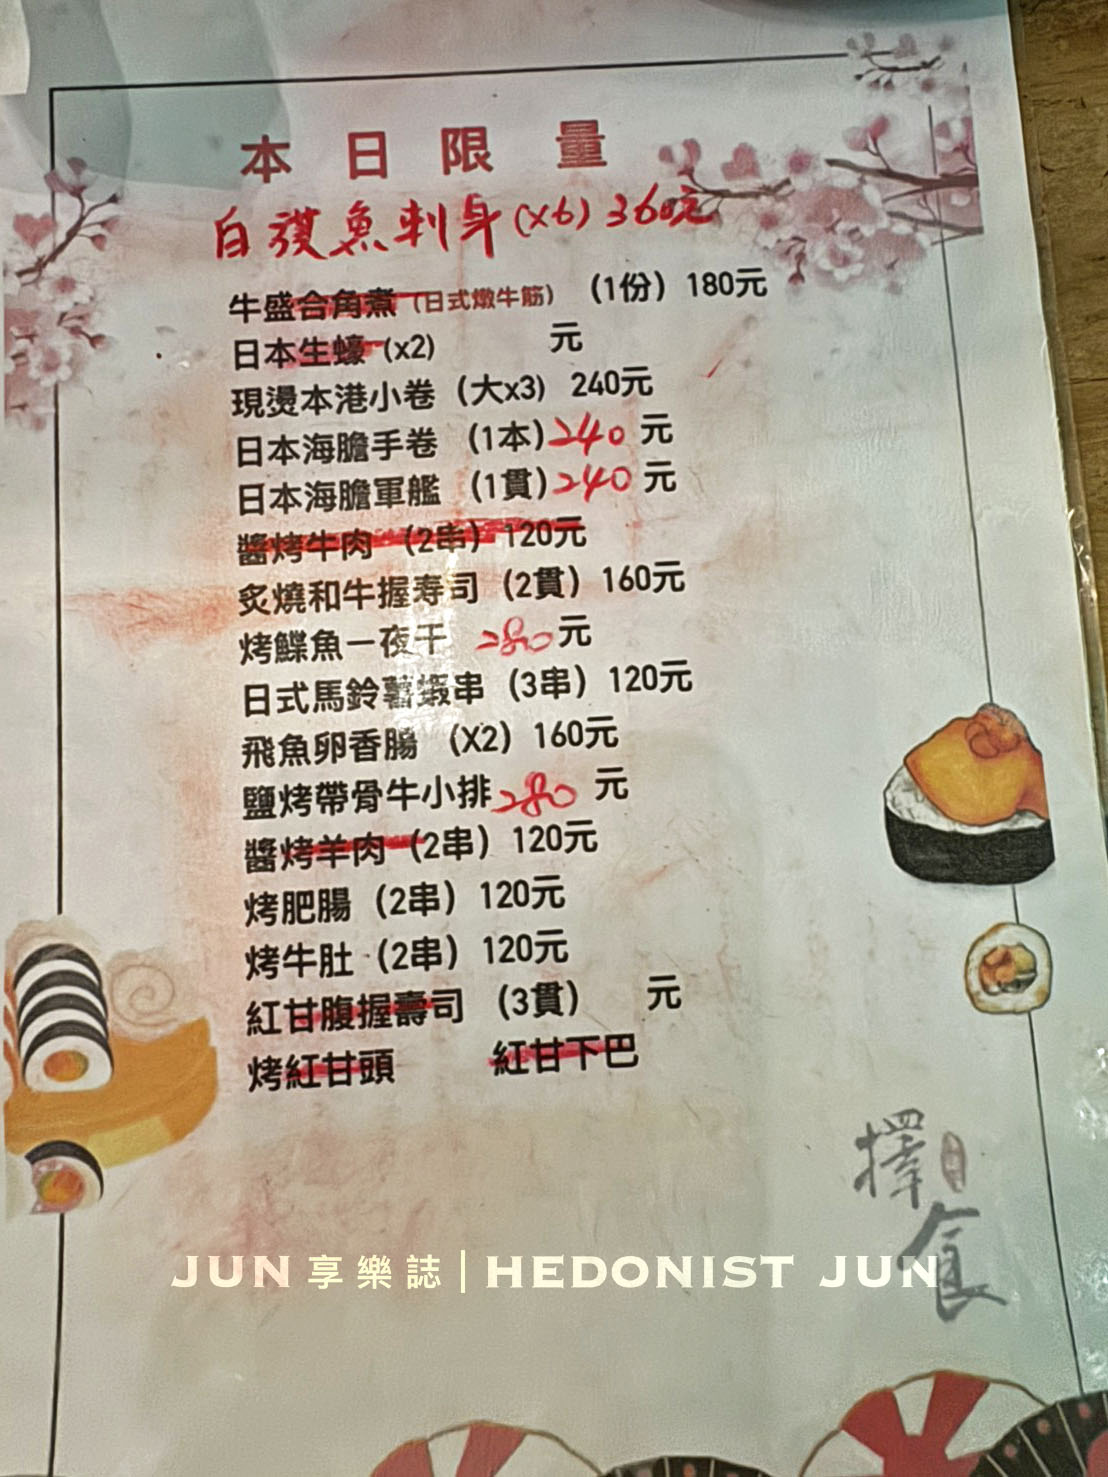 本日限量
白旗魚刺身(x6)360元
牛盛合角煮(日式燉牛筋) (1份) 180元
日本生蠔 (x2) 元
現燙本港小卷 (大x3) 240元
日本海膽手卷 (1本)240元
日本海膽軍艦 (1貫)240元
醬烤牛肉 (2串) 120元
炙燒和牛握寿司 (2貫) 160元
烤鰈魚一夜干 280元
日式馬鈴薯蝦串 (3串) 120元
飛魚卵香腸 (X2) 160元
鹽烤帶骨牛小排 280 元
醬烤羊肉 (2串) 120元
烤肥腸 (2串) 120元
烤牛肚 (2串) 120元
紅甘腹握壽司 (3貫) 元
烤紅甘頭 紅甘下巴
擇食
JUN 享樂誌 | HEDONIST JUN